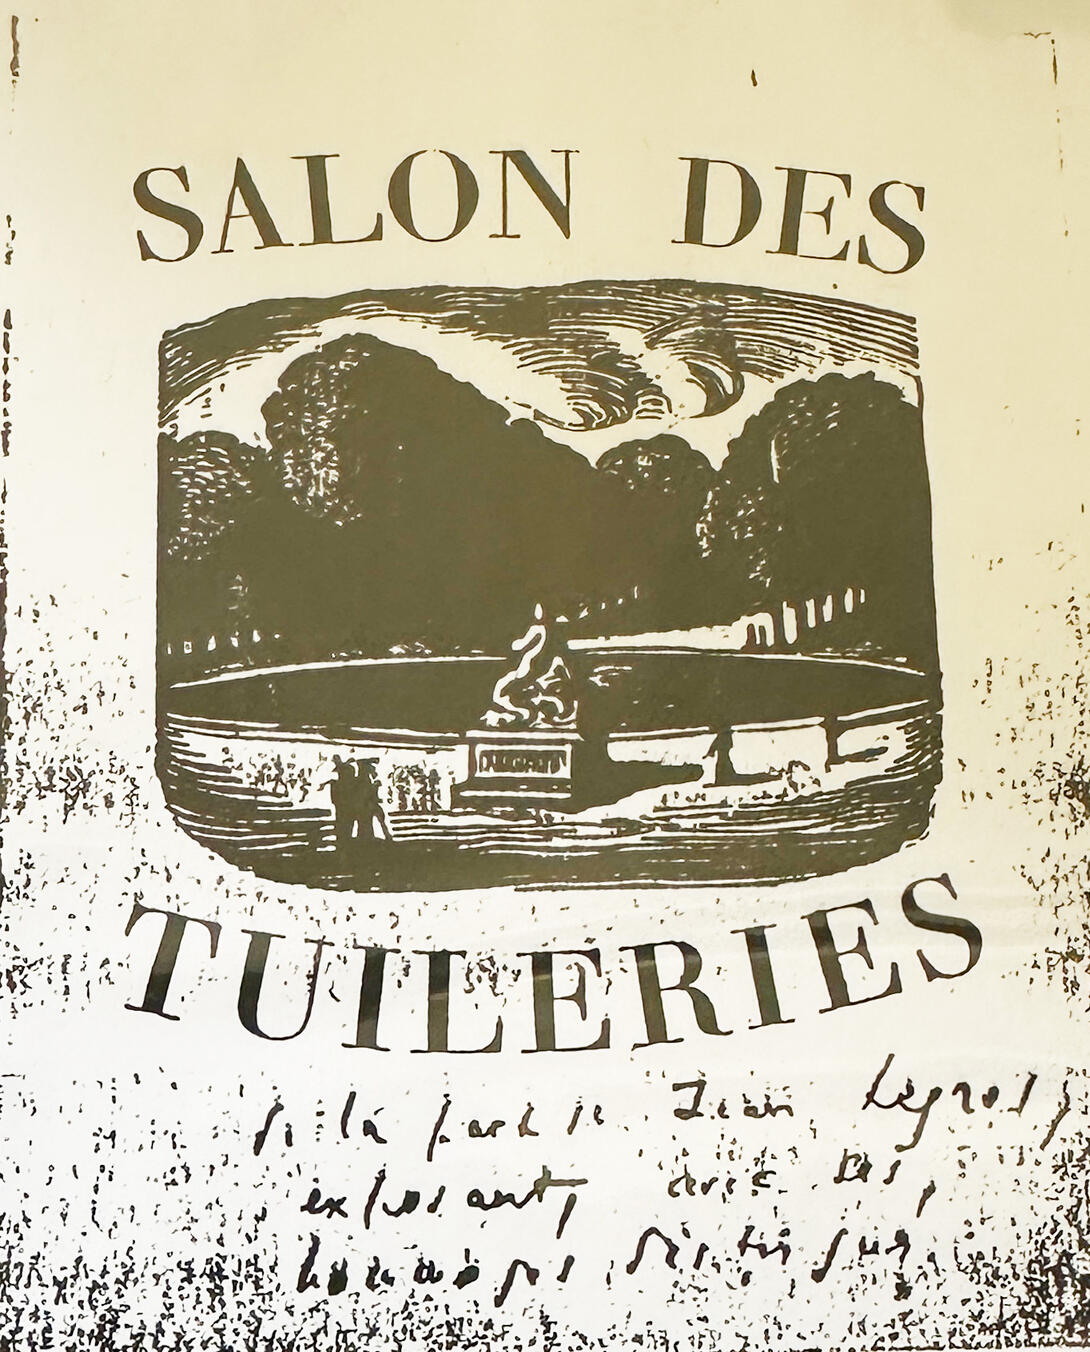 SALON DES
TUILERIES
de la part de Jean Legros
exposant, avec ses
hommages